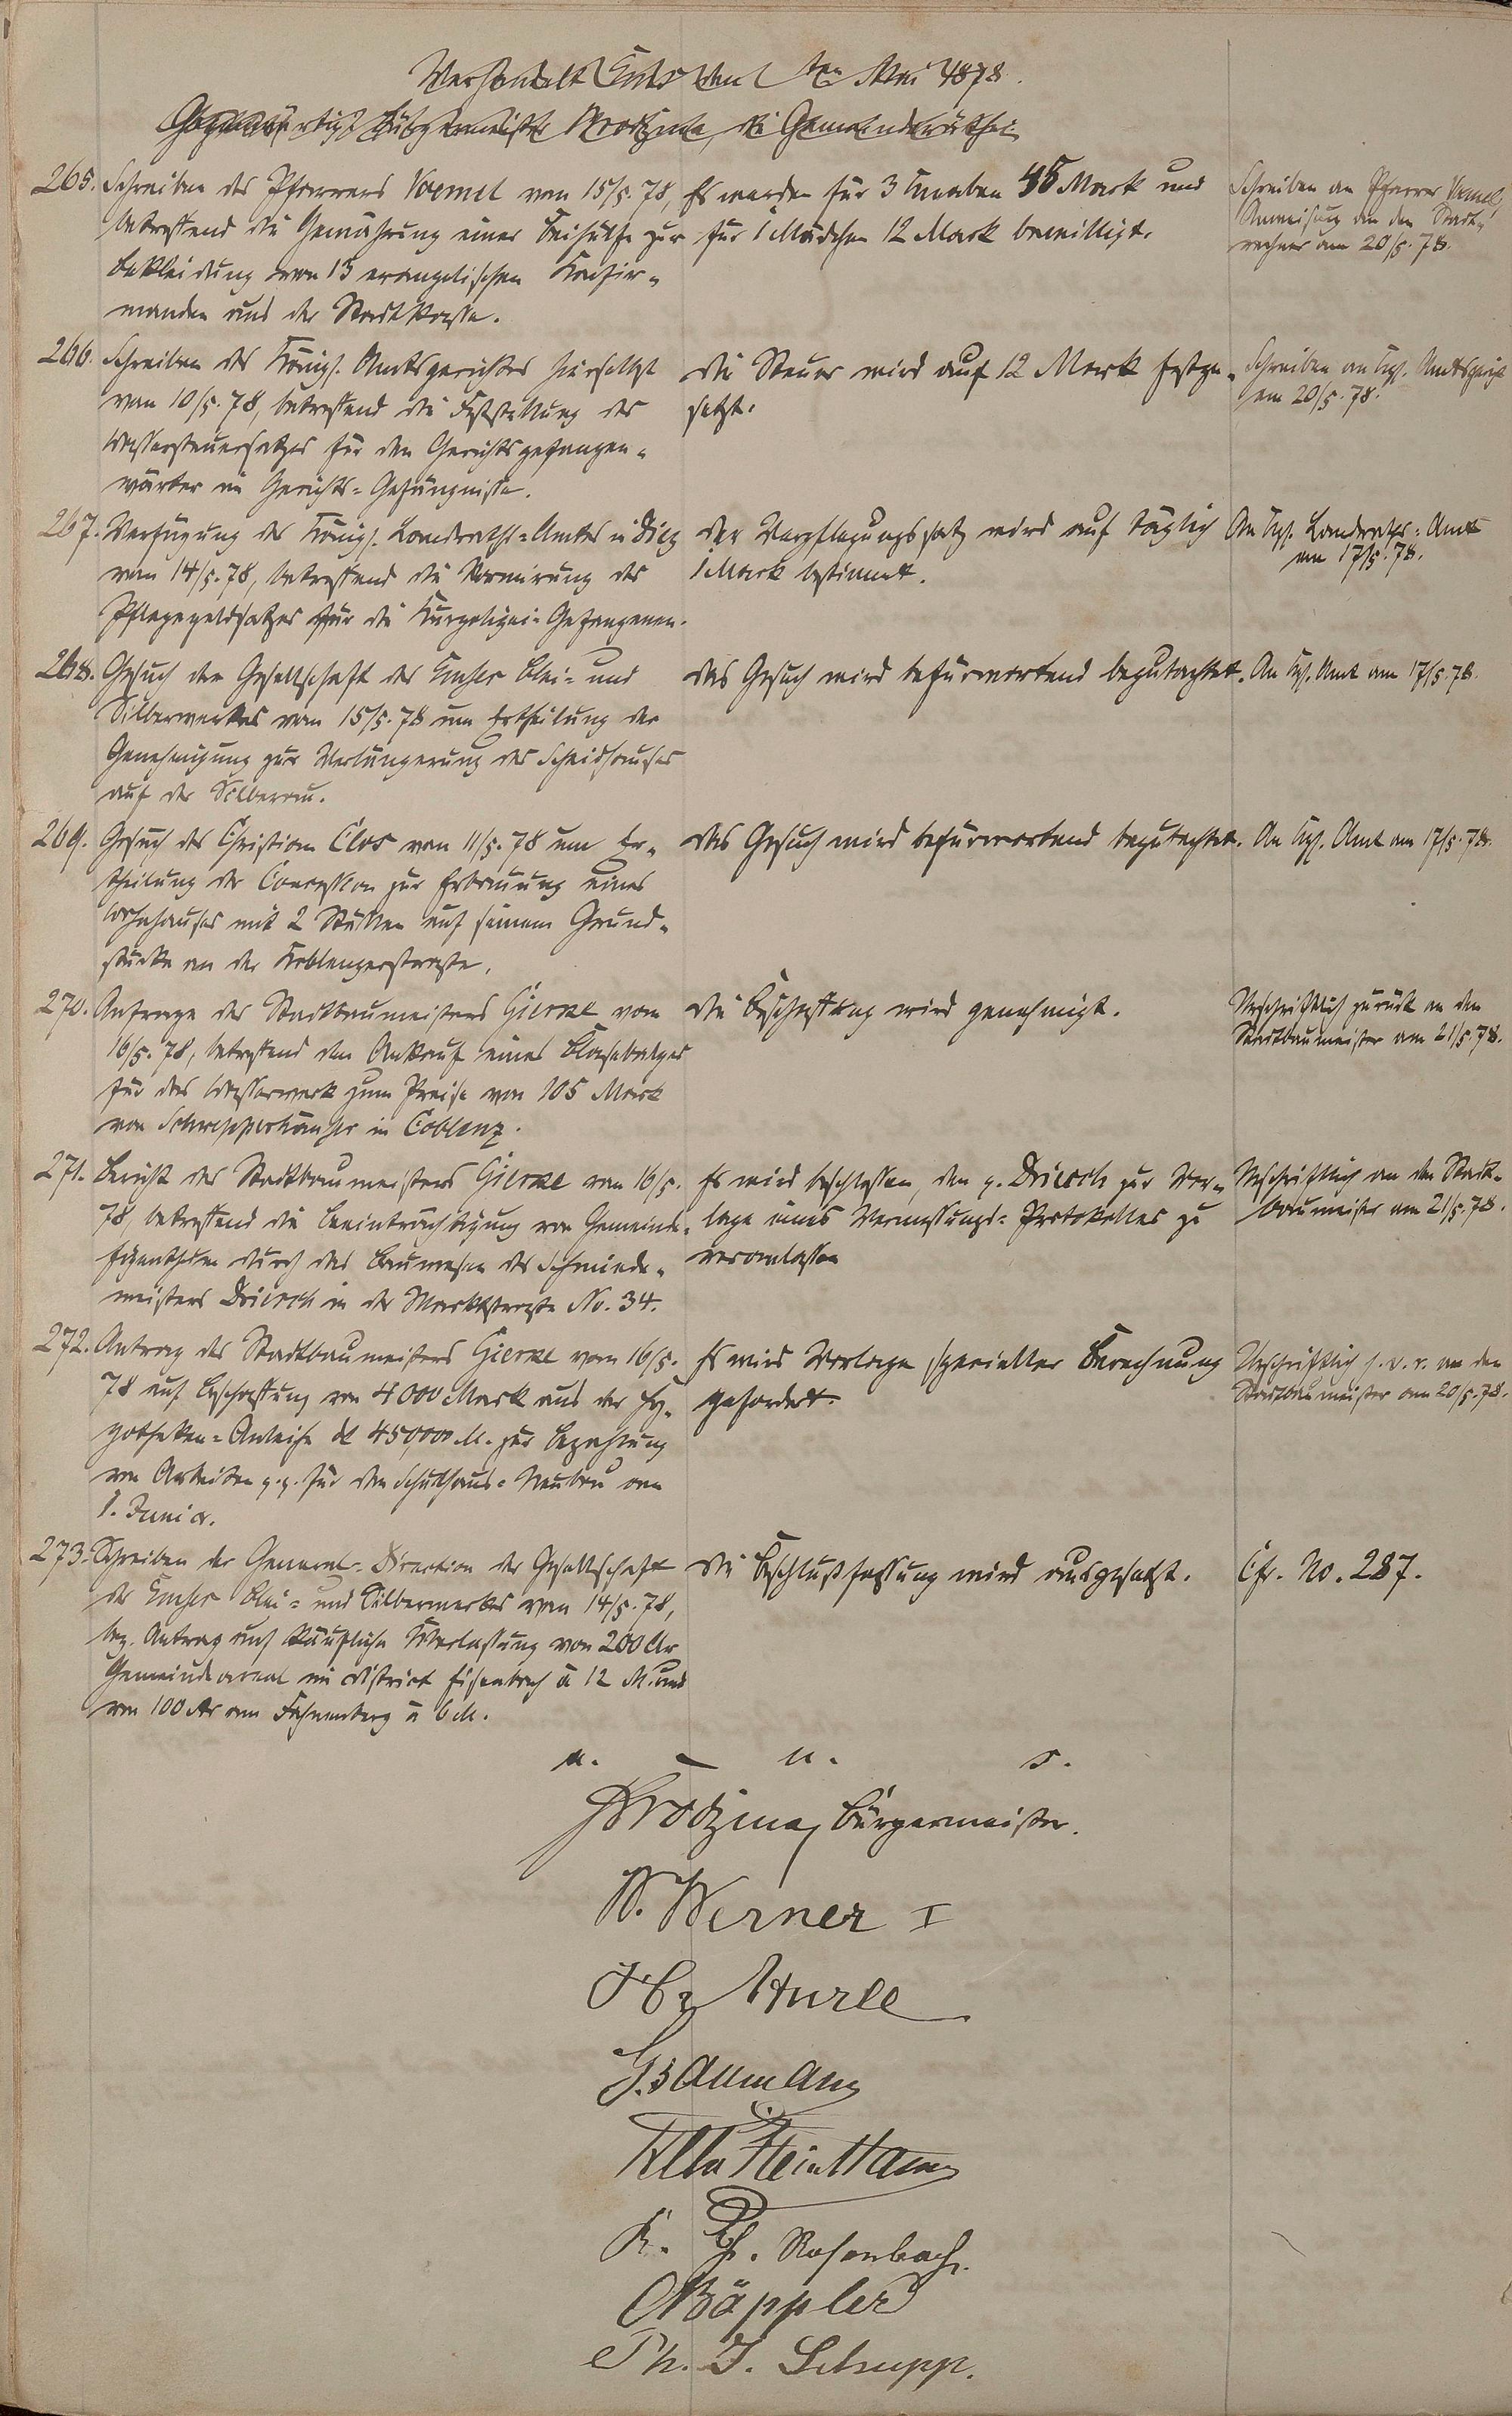 Verhandelt Ems den ten Mai 1878.
Gegenwärtig: Bürgermeister Wrodzina, die Gemeinderäthe:
265. Schreiben des Pfarrers Vömel vom 15/5. 78,
betreffend die Gewährung einer Beihülfe zur
Bekleidung von 13 evangelischen Konfir-
manden aus der Stadtkasse.
Es werden für 3 Knaben 45 Mark und
für 1 Mädchen 12 Mark bewilligt.
Schreiben an Pfarrer Vömel,
Anweisung an den Stadt-
rechner am 20/5. 78.
266. Schreiben des Königl. Amtsgerichtes hierselbst
vom 10/5. 78, betreffend die Feststellung des
Wassersteuersatzes für den Gerichtsgefangen-
wärter im Gerichts-Gefängnisse.
Die Steuer wird auf 12 Mark festge-
setzt.
Schreiben an Kgl. Amtsgericht
am 20/5. 78.
267. Verfügung des Königl. Landraths-Amtes in Diez
vom 14/5. 78, betreffend die Normirung des
Pflegegeldsatzes für die Kurpolizei-Gefangenen.
Der Verpflegungssatz wird auf täglich
1 Mark bestimmt.
An Kgl. Landraths-Amt
am 17/5. 78.
268. Gesuch der Gesellschaft des Emser Blei- und
Silberwerkes vom 15/5. 78 um Ertheilung der
Genehmigung zur Verlängerung des Scheidhauses
auf der Silberau.
Das Gesuch wird befürwortend begutachtet.
An Kgl. Amt am 17/5. 78.
269. Gesuch des Christian Clos vom 11/5. 78 um Er-
theilung der Concession zur Erbauung eines
Wohnhauses mit 2 Ställen auf seinem Grund-
stücke an der Koblenzerstraße.
Das Gesuch wird befürwortend begutachtet.
An Kgl. Amt am 17/5. 78.
270. Anfrage des Stadtbaumeisters Gierke vom
16/5. 78, betreffend den Ankauf eines Blasebalges
für das Wasserwerk zum Preise von 105 Mark
von Schwepperhäuser in Coblenz.
Die Beschaffung wird genehmigt.
Urschriftlich zurück an den
Stadtbaumeister am 21/5. 78.
271. Bericht des Stadtbaumeisters Gierke vom 16/5.
78, betreffend die Beeinträchtigung von Gemeinde-
Eigenthum durch das Bauwesen des Schmiede-
meisters Driesch in der Marktstraße No. 34.
Es wird beschlossen, den p. Driesch zur Vor-
lage eines Vermessungs-Protokolles zu
veranlassen
Urschriftlich an den Stadt-
baumeister am 21/5. 78.
272. Antrag des Stadtbaumeisters Gierke vom 16/5.
78 auf Beschaffung von 4000 Mark aus der Hy-
potheken-Anleihe de 450,000 M. zur Bezahlung
von Arbeiten p.p. für den Schulhaus-Neubau am
1. Juni cr.
Es wird Vorlage specieller Berechnung
gefordert.
Urschriftlich s. v. r. an den
Stadtbaumeister am 20/5. 78.
273. Schreiben der General-Direction der Gesellschaft
des Emser Blei- und Silberwerkes vom 14/5. 78,
bez. Antrag auf käufliche Überlassung von 200 Ar
Gemeindeareal im District Eisenbach à 12 M. und
von 100 Ar am Fahnenberg à 6 M.
Die Beschlußfassung wird ausgesetzt.
Cfr. No. 287.
a. u. s.
Bürgermeister.
W. Werner I
K. Ph. Rosenbach.
Bäppler
Ph. J. Schupp.